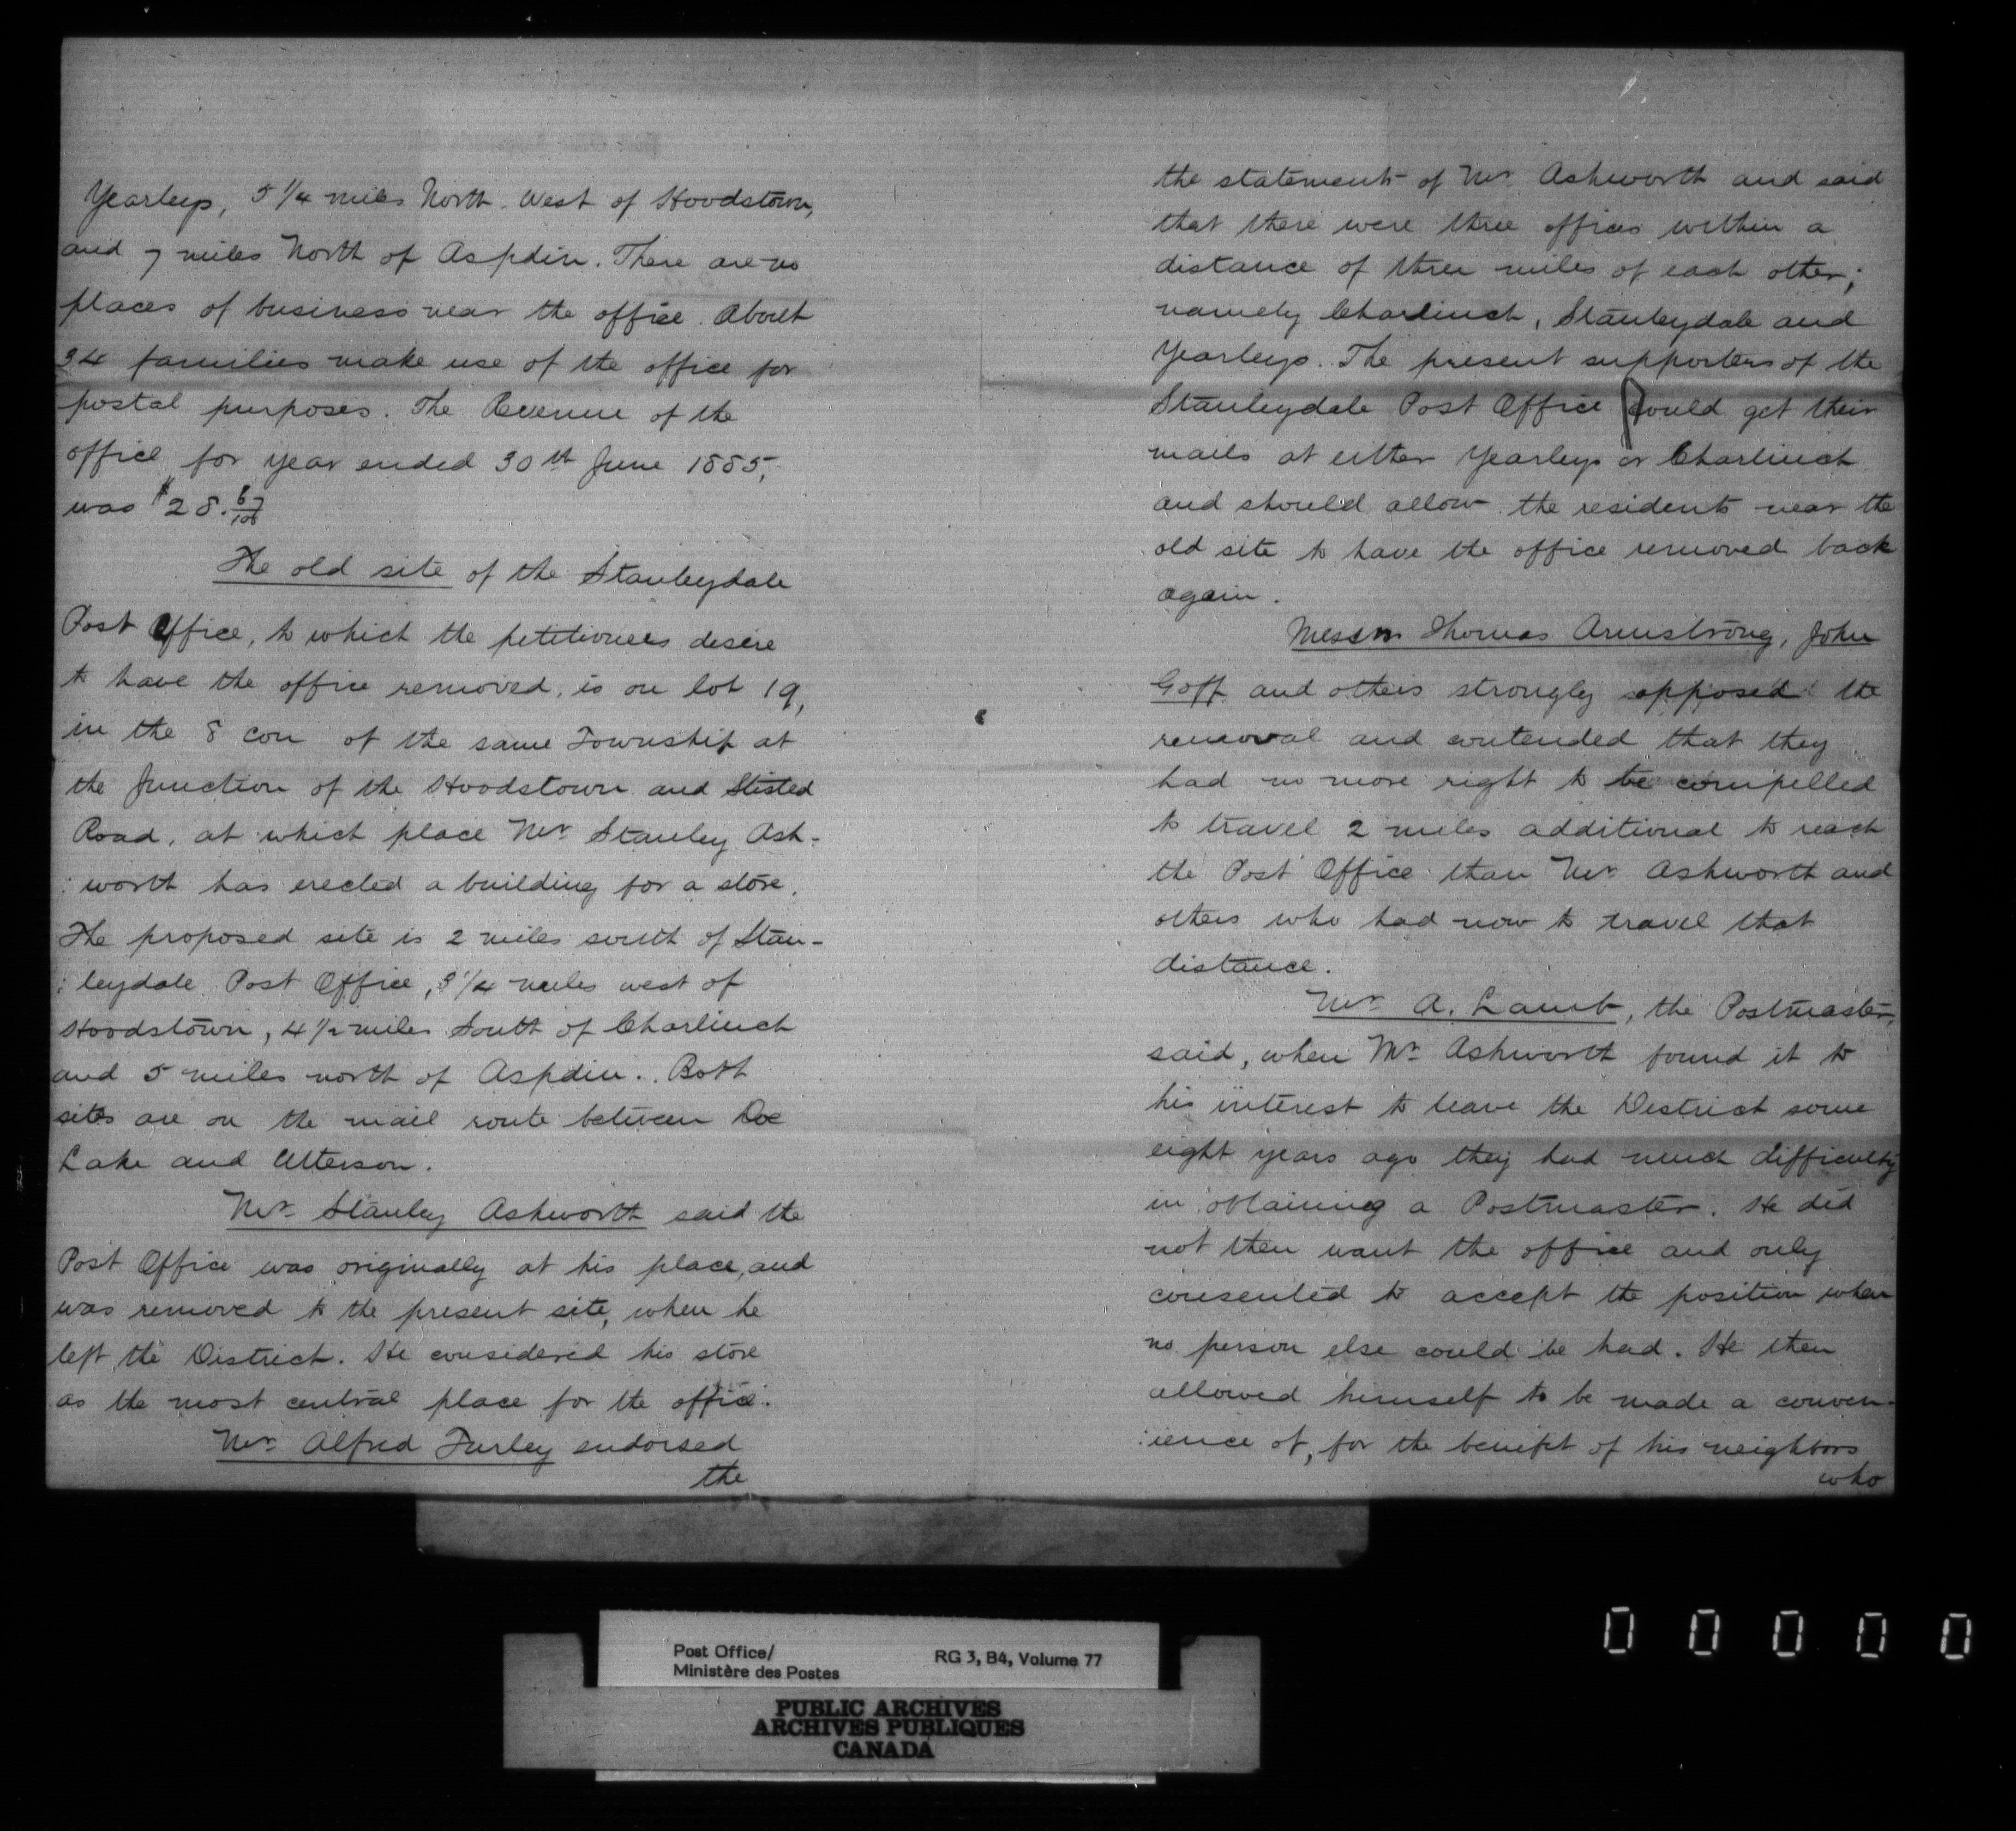 Yearleys, 5 1/4 miles North-West of Hoodstown,
and 7 miles North of Aspdin. There are no
places of business near the office. About
34 families make use of the office for
postal purposes. The Revenue of the
office for year ended 30th June 1885,
was $28.67/100
The old site of the Stanleydale
Post Office, to which the petitioners desire
to have the office removed, is on lot 19,
in the 8 con of the same Township at
the Junction of the Hoodstown and Stisted
Road, at which place Mr Stanley Ash-
:worth has erected a building for a store.
The proposed site is 2 miles south of Stan-
:leydale Post Office, 3 1/4 miles west of
Hoodstown, 4 1/2 miles South of Charlinch
and 5 miles north of Aspdin. Both
sites are on the mail route between Doe
Lake and Utterson.
Mr. Stanley Ashworth said the
Post Office was originally at his place, and
was removed to the present site, when he
left the District. He considered his store
as the most central place for the office.
Mr. Alfred Turley endorsed
the
the statements of Mr. Ashworth and said
that there were three offices within a
distance of three miles of each other;
namely Charlinch, Stanleydale and
Yearleys. The present supporters of the
Stanleydale Post Office could get their
mails at either Yearleys or Charlinch
and should allow the residents near the
old site to have the office removed back
again.
Messrs Thomas Armstrong, John
Goff and others strongly opposed the
removal and contended that they
had no more right to be compelled
to travel 2 miles additional to reach
the Post Office than Mr. Ashworth and
others who had now to travel that
distance.
Mr. A. Lamb, the Postmaster,
said, when Mr. Ashworth found it to
his interest to leave the District some
eight years ago they had much difficulty
in obtaining a Postmaster. He did
not then want the office and only
consented to accept the position when
no person else could be had. He then
allowed himself to be made a conven-
:ience of, for the benefit of his neighbors
who
Post Office/
Ministère des Postes
RG 3, B4, Volume 77
PUBLIC ARCHIVES
ARCHIVES PUBLIQUES
CANADA
0 0 0 0 0